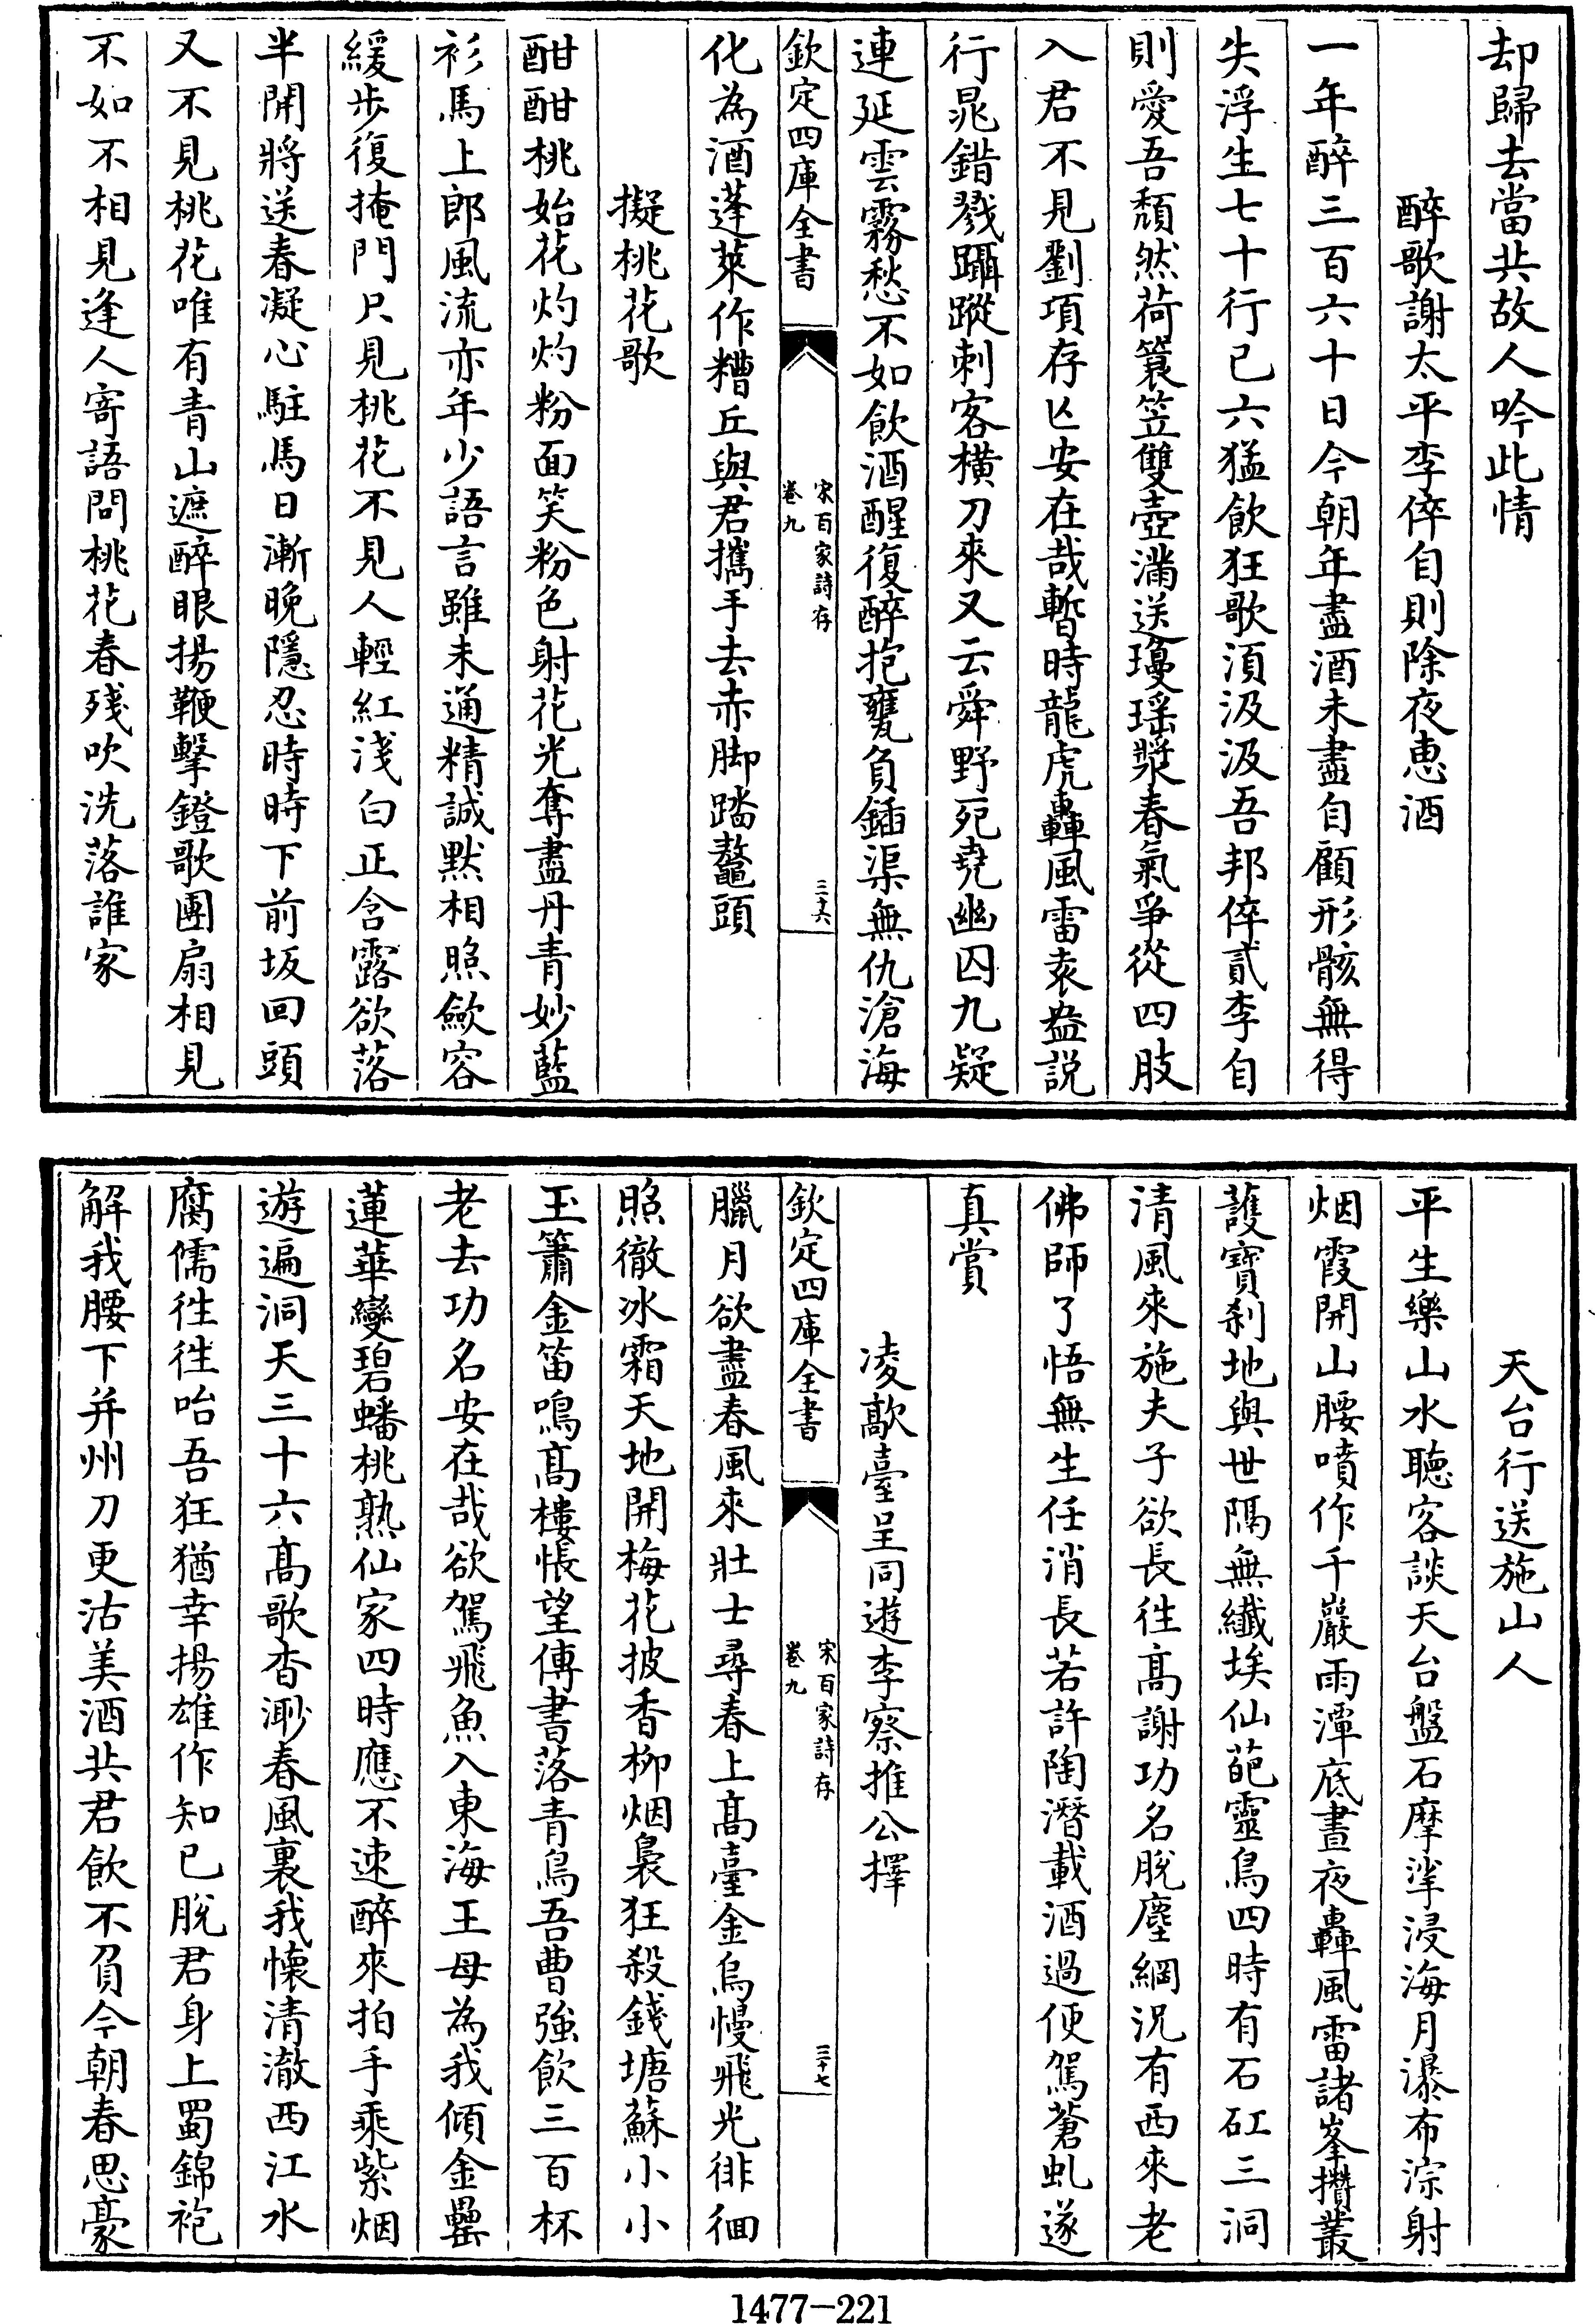 却歸去當共故人吟此情
醉歌謝太平李倅自則除夜惠酒
一年醉三百六十日今朝年盡酒未盡自顧形骸無得
失浮生七十行已六猛飲狂歌湏汲汲吾邦倅貳李自
則愛吾頹然荷簑笠雙壺滿送瓊瑶漿春氣爭從四肢
入君不見劉項存亾安在哉暫時龍虎轟風雷袁盎説
行鼂錯戮躡蹤刺客横刀來又云舜野死堯幽囚九疑
連延雲霧愁不如飲酒醒復醉抱甕負鍤渠無仇滄海
欽定四庫全書
宋百家詩存
卷九
三十六
化為酒蓬萊作糟丘與君攜手去赤脚踏鼇頭
擬桃花歌
酣酣桃始花灼灼粉面笑粉色射花光奪盡丹青妙藍
衫馬上郎風流亦年少語言雖未通精誠默相照斂容
緩步復掩門只見桃花不見人輕紅淺白正含露欲落
半開將送春凝心駐馬日漸晚隱忍時時下前坂回頭
又不見桃花唯有青山遮醉眼揚鞭擊鐙歌團扇相見
不如不相見逢人寄語問桃花春殘吹洗落誰家
天台行送施山人
平生樂山水聽客談天台盤石摩挲浸海月瀑布淙射
烟霞開山腰噴作千巖雨潭底晝夜轟風雷諸峯攢叢
護寶刹地與世隔無纖埃仙葩靈鳥四時有石矼三洞
清風來施夫子欲長徃髙謝功名脫塵網況有西來老
佛師了悟無生任消長若許陶潛載酒過便駕蒼虬遂
真賞
凌歊臺呈同遊李察推公擇
欽定四庫全書
宋百家詩存
卷九
三十七
臘月欲盡春風來壯士尋春上髙臺金烏慢飛光徘徊
照徹冰霜天地開梅花披香柳烟裊狂殺錢塘蘇小小
玉簫金笛鳴髙樓悵望傳書落青鳥吾曹強飲三百杯
老去功名安在哉欲駕飛魚入東海王母為我傾金罍
蓮華變碧蟠桃熟仙家四時應不速醉來拍手乘紫烟
遊遍洞天三十六髙歌杳渺春風裏我懷清澈西江水
腐儒徃徃咍吾狂猶幸揚雄作知已脫君身上蜀錦袍
解我腰下并州刀更沽美酒共君飲不負今朝春思豪
1477—221